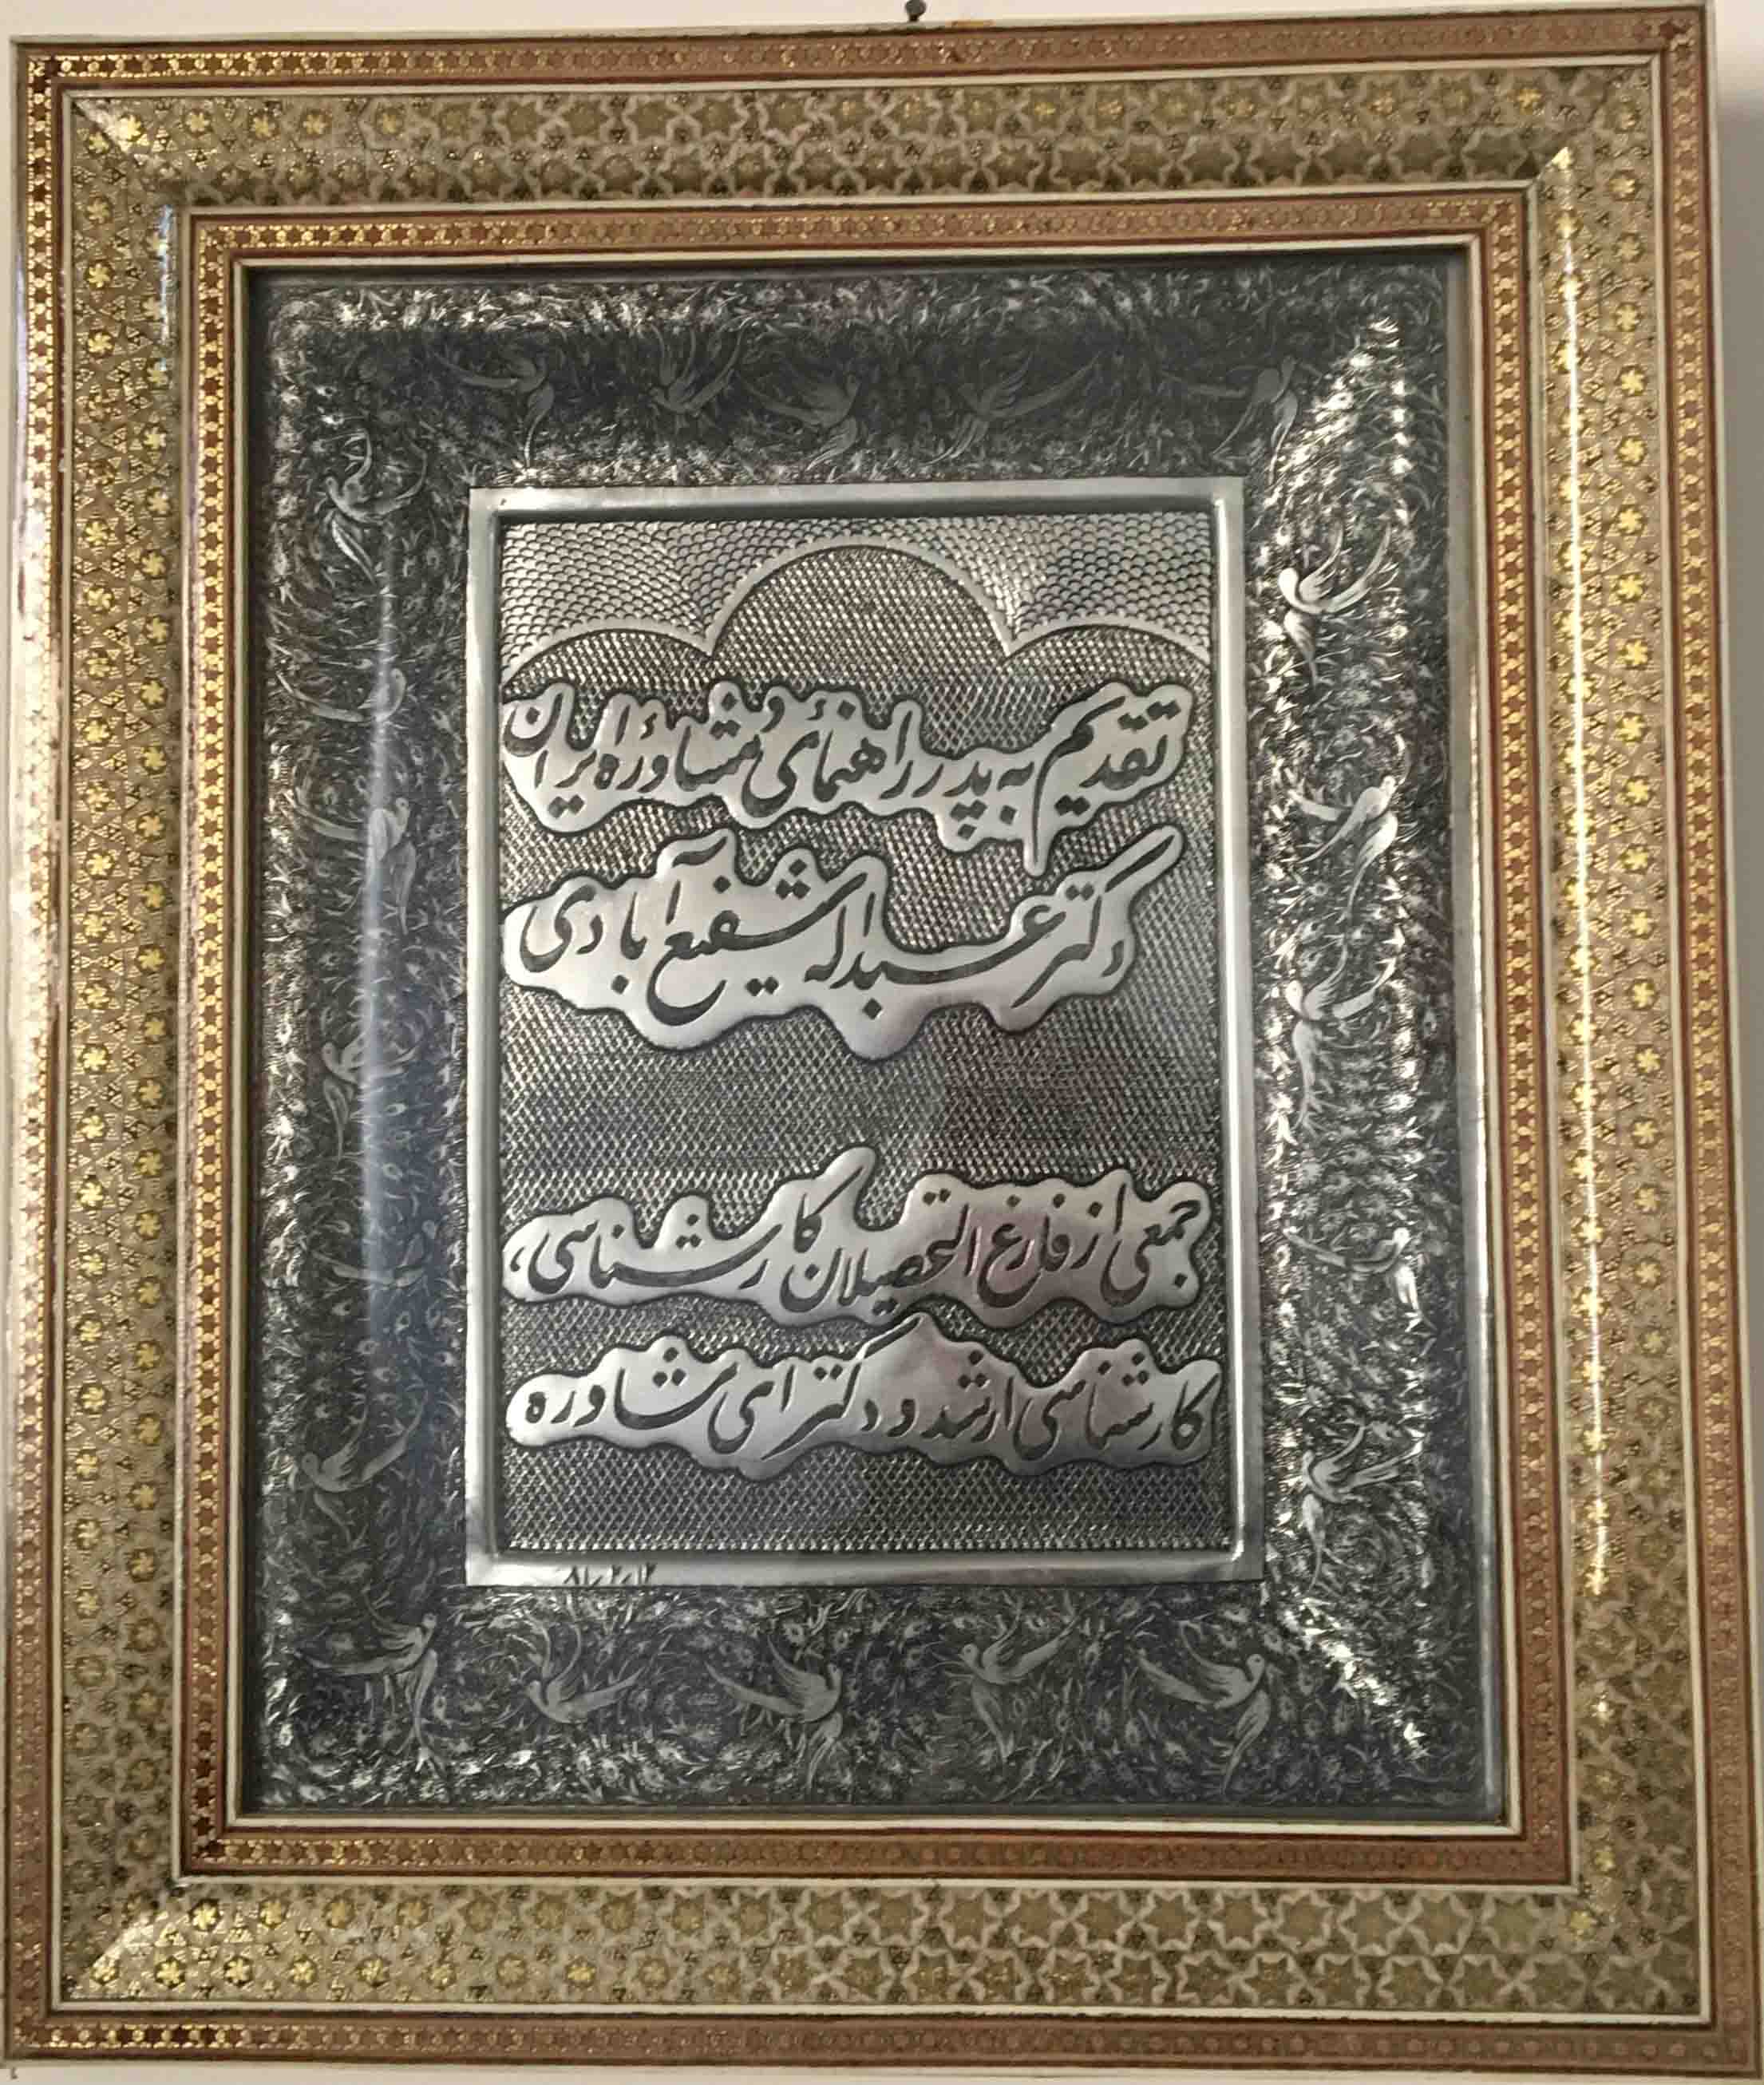 تقدیم به پدر راهنمائی و مشاورهٔ ایران
دکتر عبداله شفیع آبادی
جمعی از فارغ التحصیلان کارشناسی،
کارشناسی ارشد و دکترای مشاوره
۸۱٫۲٫۱۲